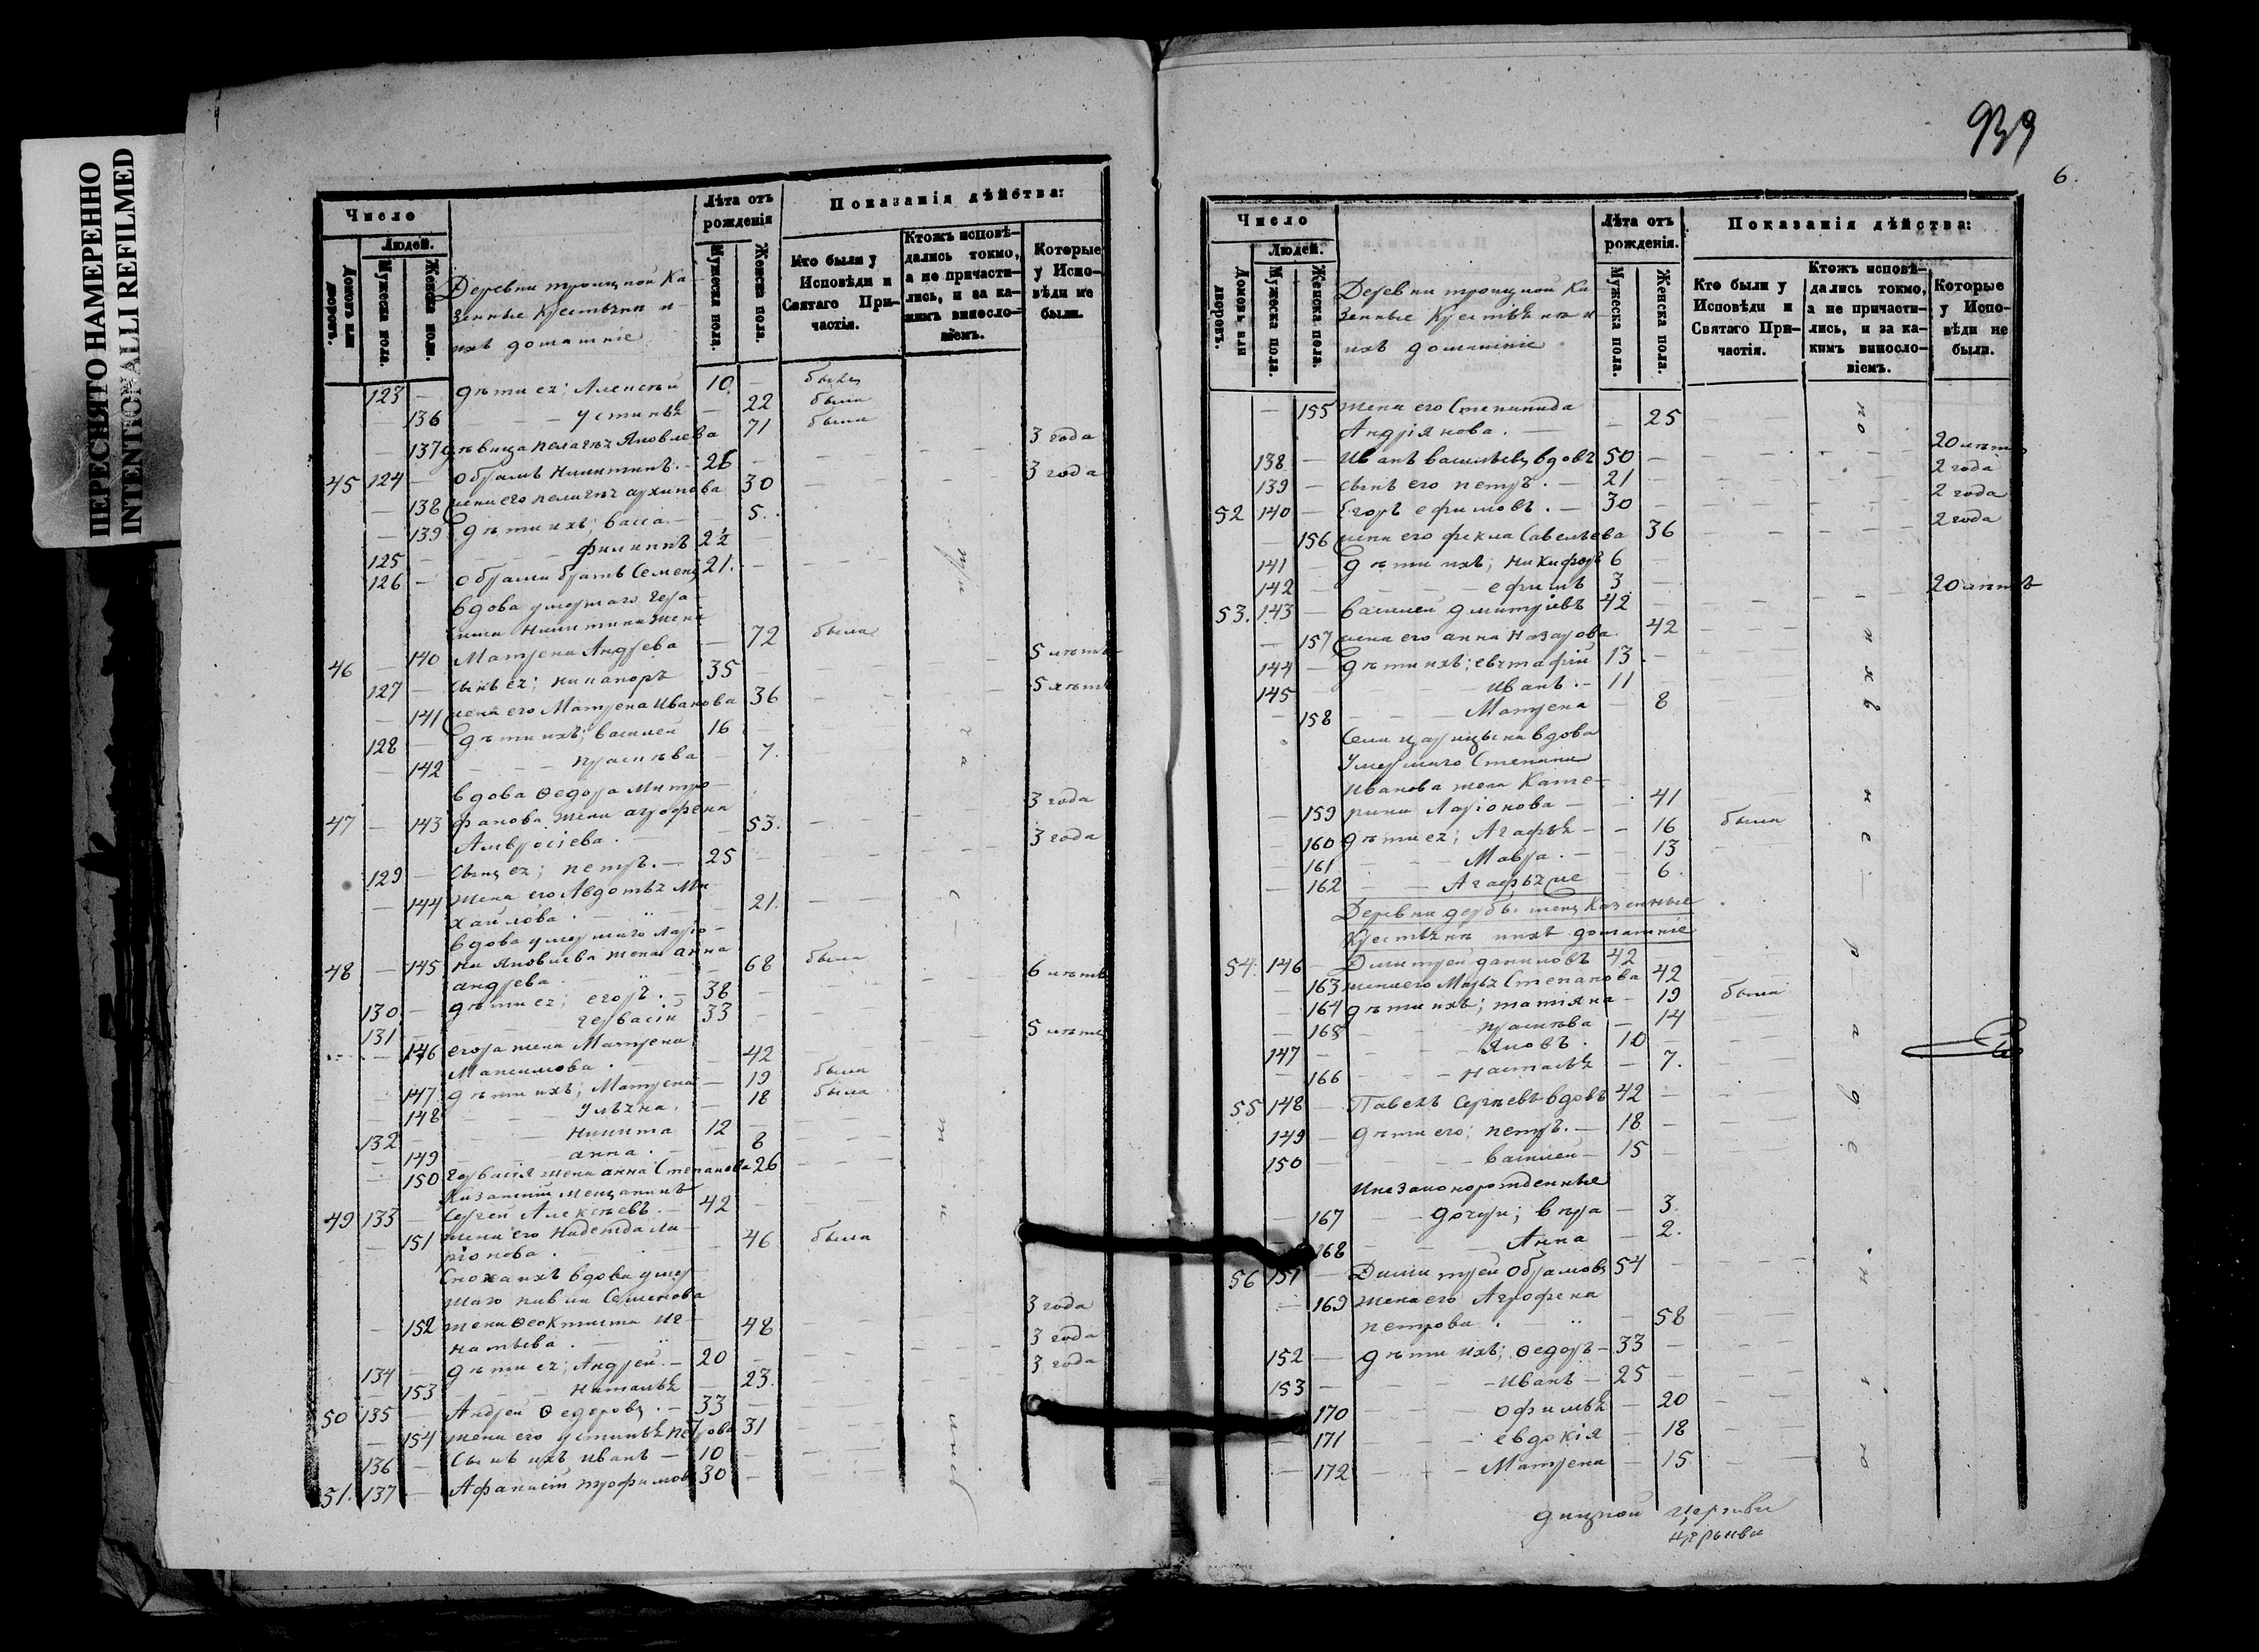 ПЕРЕСНЯТО НАМЕРЕННО
INTENTIONALLI REFILMED
Число
Людей.
Домовъ или дворовъ.
Мужеска пола.
Женска пола.
Деревни троицкой Ка
зенные Крестьяни и
ихъ домашніе
Лѣта отъ рожденія
Мужеска пола.
Женска пола.
Показанія дѣйства:
Кто были у Исповѣди и Святаго Причастія.
Ктожъ исповѣдались токмо, а не причастились, и за какимъ винословіемъ.
Которые у Исповѣди не были.
123 — дѣти ея; Алексѣй 10 — былъ
— 136 — — Устинья — 22 была
— 137 дѣвица пелагея Яковлева 71 была
45 124 — Обрамъ Никитинъ. — 26 — 3 года
— 138 жена его пелагея архипова 30 3 года
— 139 дѣти ихъ; васса. — 5.
125 — филиппъ 2½ —
126 — Обрама братъ Семенъ 21. —
вдова умершаго Гера
сима Никитина жена
46 — 140 Матрена Андрева — 72 была
127 — Сынъ ея; никаноръ 35 5 лѣтъ
— 141 жена его Матрена Иванова 36 5 лѣтъ
128 — дѣти ихъ; василей 16 —
— 142 — — — прасковья — 7.
вдова Ѳедора Митро—
47 — 143 фанова жена агрофена 3 года
Амвросіева. — 53.
129 — Сынъ ея; петръ. — 25 — 3 года
— 144 жена его Авдотья Ми
хайлова. — — 21.
вдова умершаго Ларіо—
48 — 145 на Яковлева жена анна
андрева — 68 была
130 — дѣти ея; егоръ. — 38 6 лѣтъ
131 — — гервасій 33 —
— 146 егора жена Матрена 5 лѣтъ
Максимова. — — 42
— 147 дѣти ихъ; Матрена — 19 была
— 148 — Ульяна. — 18 была
132 — — Никита 12 —
— 149 — анна. — 8
— 150 Гервасія жена анна Степанова 26
Казанскій мещанинъ
49 133 — Сергей Алексѣевъ. — 42 —
— 151 жена его Надежда ла—
ріонова. — — 46 была
Сноха ихъ вдова умер
шаго павла Семенова
— 152 жена Ѳеоктиста Иг—
натьева. — 48 3 года
134 — дѣти ея; Андрей. — 20 — 3 года
— 153 — — Наталья — 23. 3 года
50 135 — Андрей Ѳедоровъ. — 33 —
— 154 жена его устинья петрова 31
136 — Сынъ ихъ иванъ — 10 —
51. 137 — Афанасій трофимовъ 30 —
при ча с т и і
939
6.
Число
Людей.
Домовъ или дворовъ.
Мужеска пола.
Женска пола.
Деревни троицкой Ка
зенные Крестьяни и
ихъ домашніе
Лѣта отъ рожденія.
Мужеска пола.
Женска пола.
Показанія дѣйства:
Кто были у Исповѣди и Святаго Причастія.
Ктожъ исповѣдались токмо, а не причастились, и за какимъ винословіемъ.
Которые у Исповѣди не были.
— 155 жена его Степанида
Андріянова. — — 25
138 — Иванъ васильевъ вдовъ 50 — 20 лѣтъ
139 — сынъ его петръ. — 21 — 2 года
52 140 — Егоръ ефимовъ. — 30 — 2 года
— 156 жена его фекла Савельева 36 2 года
141 — дѣти ихъ; никифоръ 6 —
142 — — — ефимъ 3 —
53. 143 — василей дмитріевъ 42 — 20 лѣтъ
— 157 жена его анна Назарова. 42
144 — дѣти ихъ; евстафій 13. —
145 — иванъ. — 11
— 158 — — Матрена — 8
Села царицына вдова
Умершаго Степана
Иванова жена Кате—
— 159 рина Ларіонова — 41
— 160 дѣти ея; Агафья — — 16 была
161 — — Мавра. — — 13
— 162 — — Агафья же — 6.
Деревни дербышекъ Казенные
Крестьяни ихъ домашніе
54. 146 — Димитрей даниловъ 42
— 163 жена его Марья Степанова 42
— 164 дѣти ихъ; татіяна — 19 была
— 165 — прасковья — 14
147 — — — Яковъ. 10 —
— 166 — — Наталья — 7.
55 148 — Павелъ Сергѣевъ вдовъ 42 —
149 — дѣти его; петръ. — 18 —
150 — — василей — 15 —
И незаконорожденные
— 167 — дочери; вѣра — 3.
168 — — Анна — 2.
56 151 — Димитрей Обрамовъ 54
— 169 жена его Агрофена
петрова. — — 58
152 — дѣти ихъ; Ѳедоръ — 33 —
153 — — Иванъ — 25 —
170 — — Офимья — 20
— 171 — — евдокія — 18
— 172 — Матрена — 15
по ихъ не радѣнію
церкви